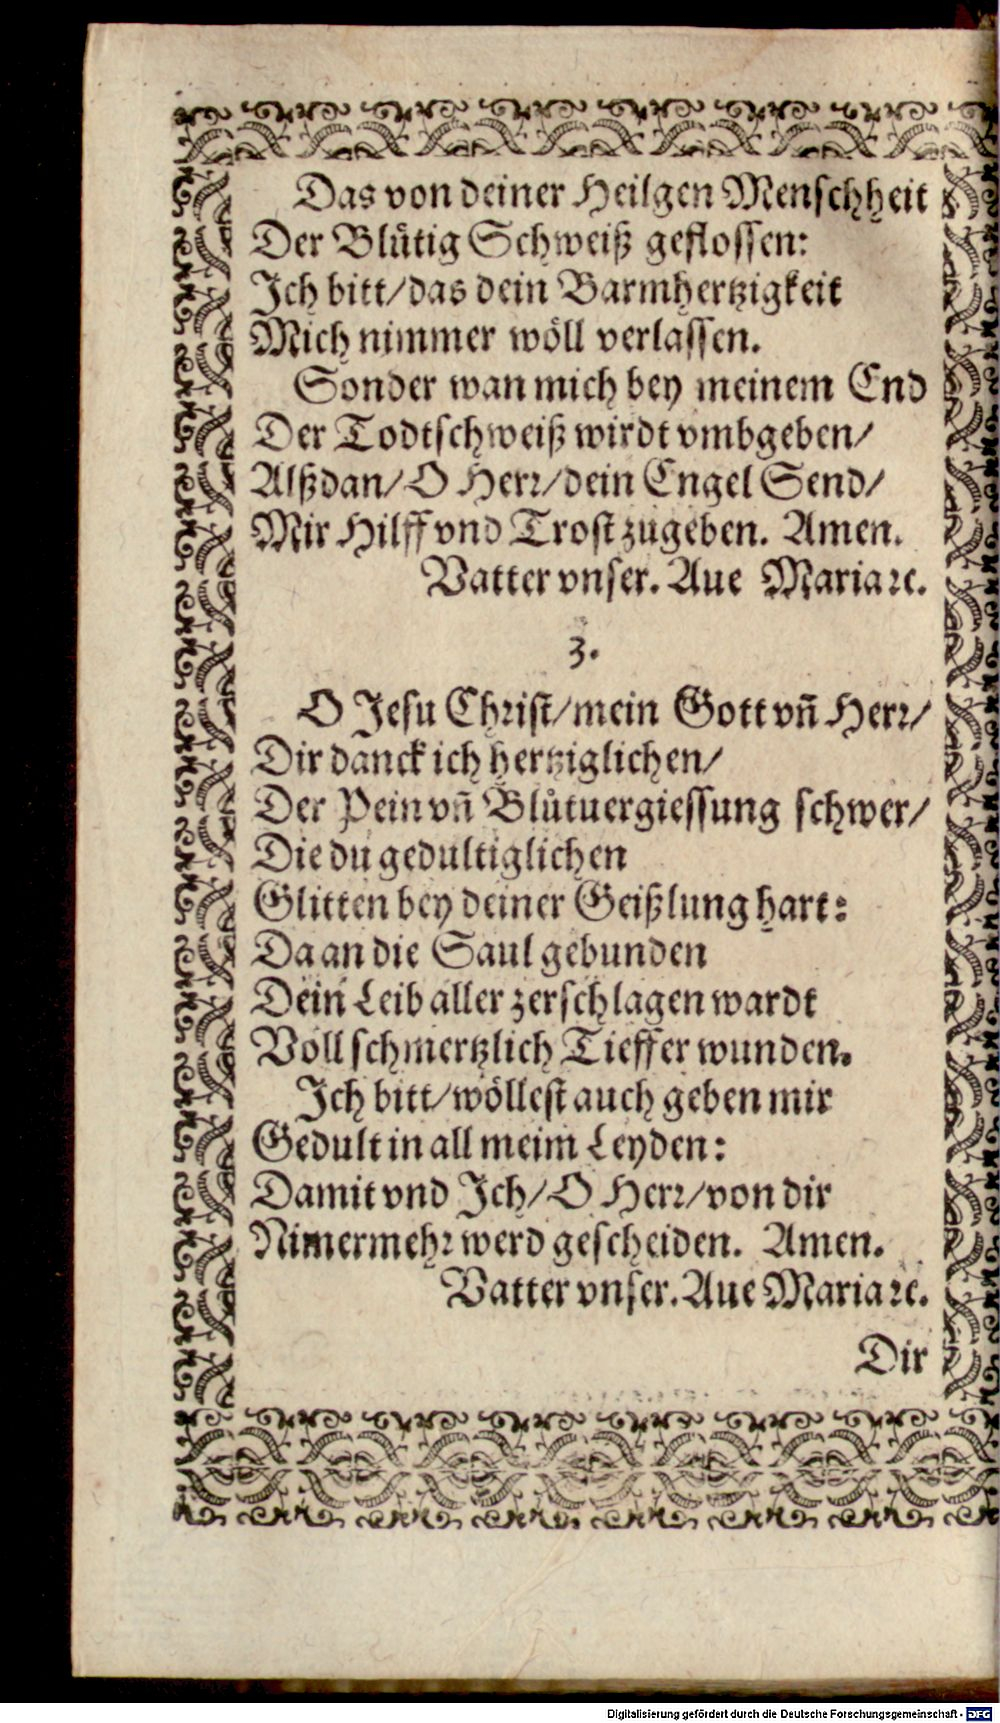 Das von deiner Heilgen Menschheit
Der Blůtig Schweiß geflossen:
Ich bitt/das dein Barmhertzigkeit
Mich nimmer wöll verlassen.
Sonder wan mich bey meinem End
Der Todtschweiß wirdt vmbgeben/
Alßdan/O Herr/dein Engel Send/
Mir Hilff vnd Trost zugeben. Amen.
Vatter vnser. Aue Maria ꝛc.
3.
O Jesu Christ/mein Gott vñ Herr/
Dir danck ich hertziglichen/
Der Pein vñ Blůtuergiessung schwer/
Die du gedultiglichen
Glitten bey deiner Geißlung hart:
Da an die Saul gebunden
Dein Leib aller zerschlagen wardt
Voll schmertzlich Tieffer wunden.
Ich bitt/wöllest auch geben mir
Gedult in all meim Leyden:
Damit vnd Ich/O Herr/von dir
Nimermehr werd gescheiden. Amen.
Vatter vnser. Aue Maria ꝛc.
Dir
Digitalisierung gefördert durch die Deutsche Forschungsgemeinschaft - DFG